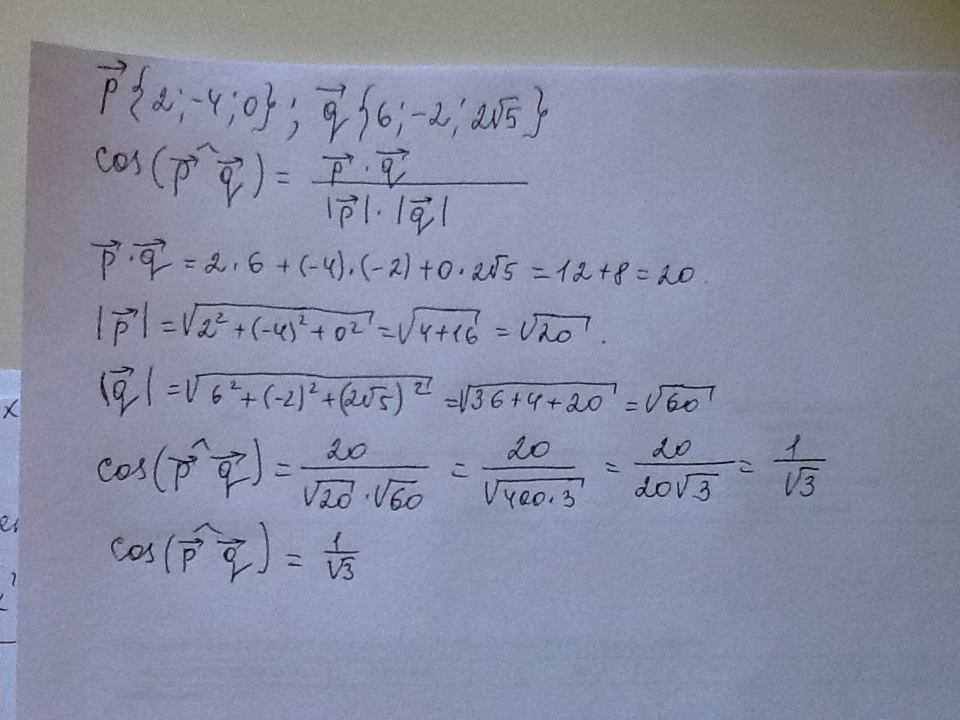 p⃗ {2; -4; 0}; q⃗ {6; -2; 2√5}
cos(p⃗ ^ q⃗) = (p⃗ · q⃗) / (|p⃗| · |q⃗|)
p⃗ · q⃗ = 2 · 6 + (-4) · (-2) + 0 · 2√5 = 12 + 8 = 20.
|p⃗| = √(2² + (-4)² + 0²) = √(4+16) = √20.
|q⃗| = √(6² + (-2)² + (2√5)²) = √(36+4+20) = √60
cos(p⃗ ^ q⃗) = 20 / (√20 · √60) = 20 / √(400·3) = 20 / (20√3) = 1/√3
cos(p⃗ ^ q⃗) = 1/√3
x